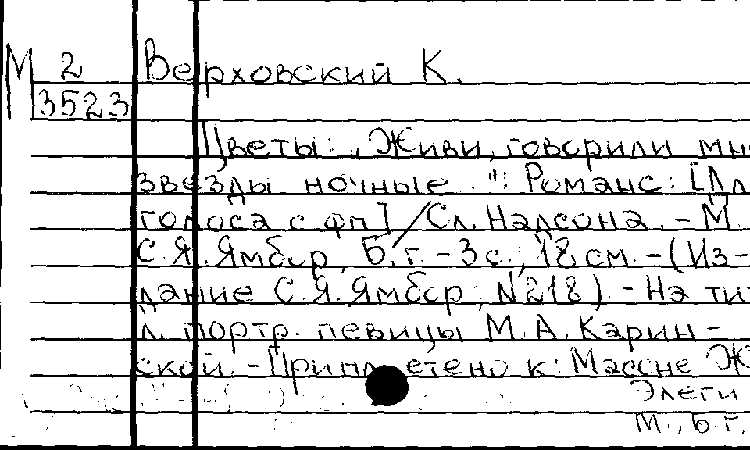 М 2
3523
Верховский К.
Цветы: "Живи, говорили мн
звезды ночные.": Романс: [Дл
голоса с фп] / Сл. Надсона. - М.
С.Я. Ямбор, Б.г. - 3 с., 18 см. - (Из-
дание С.Я. Ямбор, N218) - На тит
л. портр. певицы М.А. Карин-
ской. - Приплетено к: Массне Ж
Элеги
М., Б.г.